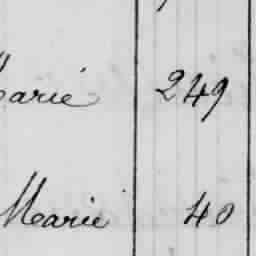 Marié 249
Marie 40